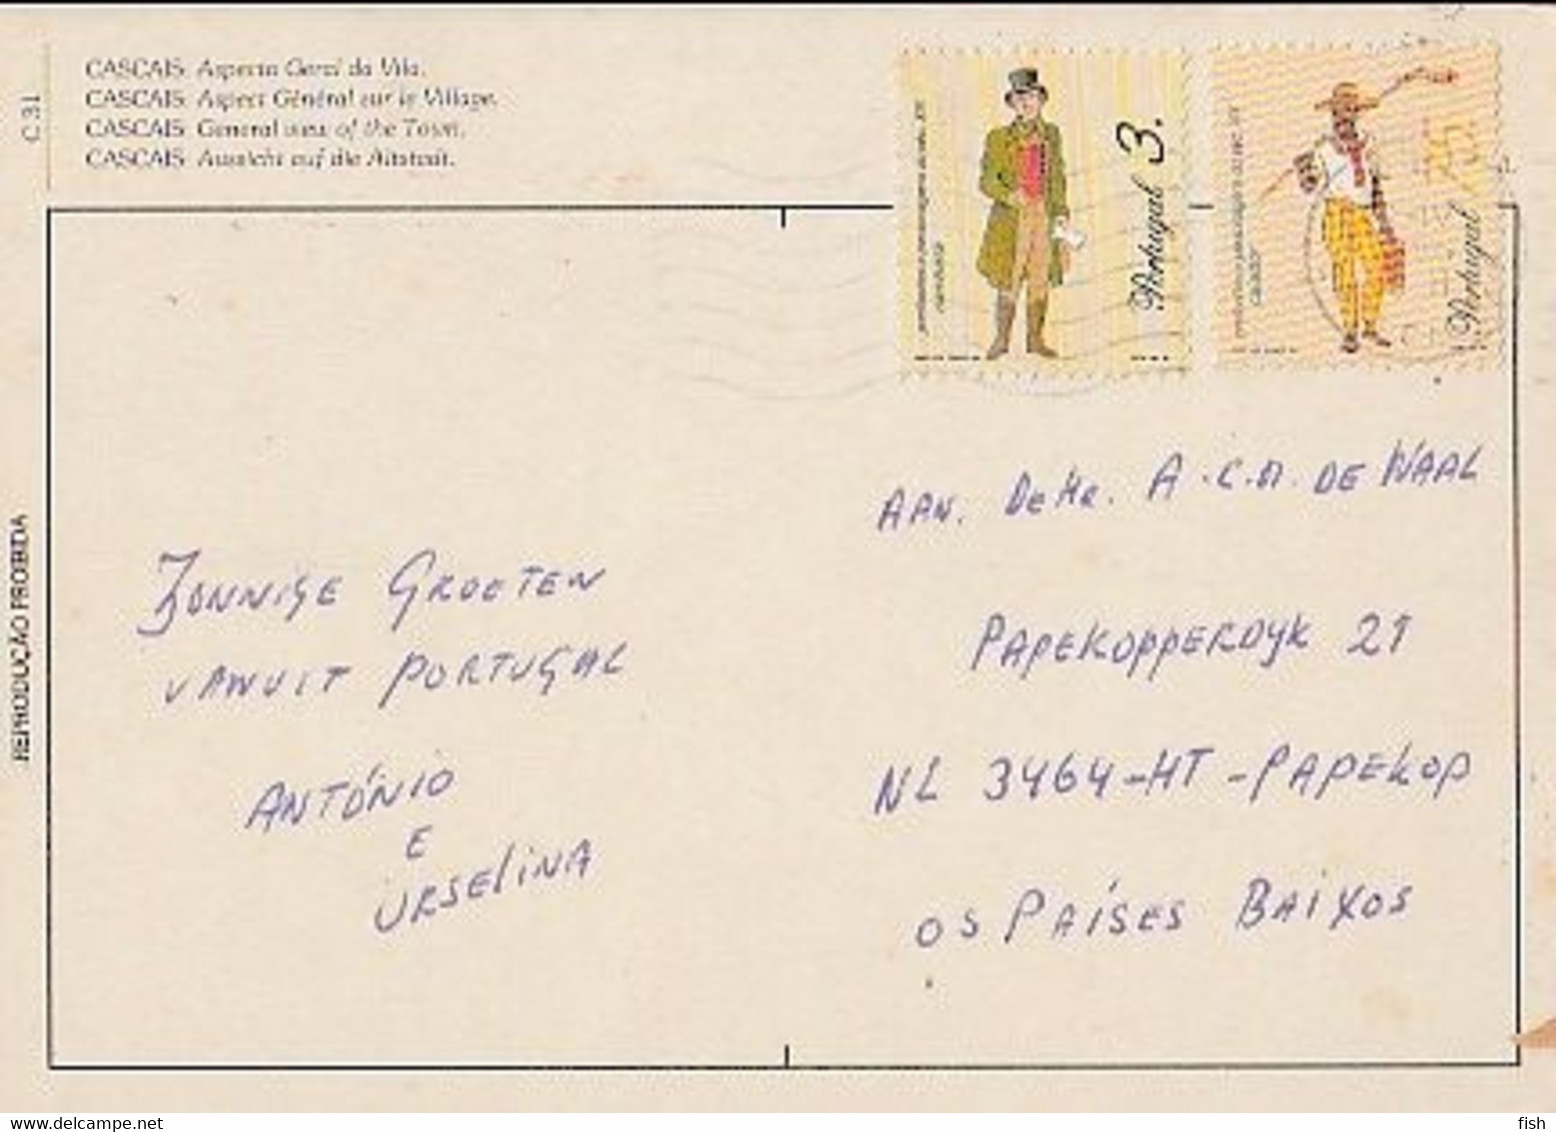 CASCAIS Aspecto Geral da Vila.
CASCAIS Aspect Général sur le Village.
CASCAIS General view of the Town.
CASCAIS Aussicht auf die Altstadt.
C 31
REPRODUÇÃO PROIBIDA
3.
Portugal
Portugal
ZONNIGE GROETEN
VANUIT PORTUGAL
ANTÓNIO
E
URSELINA
AAN. DE HR. A.C.M. DE WAAL
PAPEKOPPERDYK 21
NL 3464-HT-PAPEKOP
OS PAÍSES BAIXOS
www.delcampe.net
fish